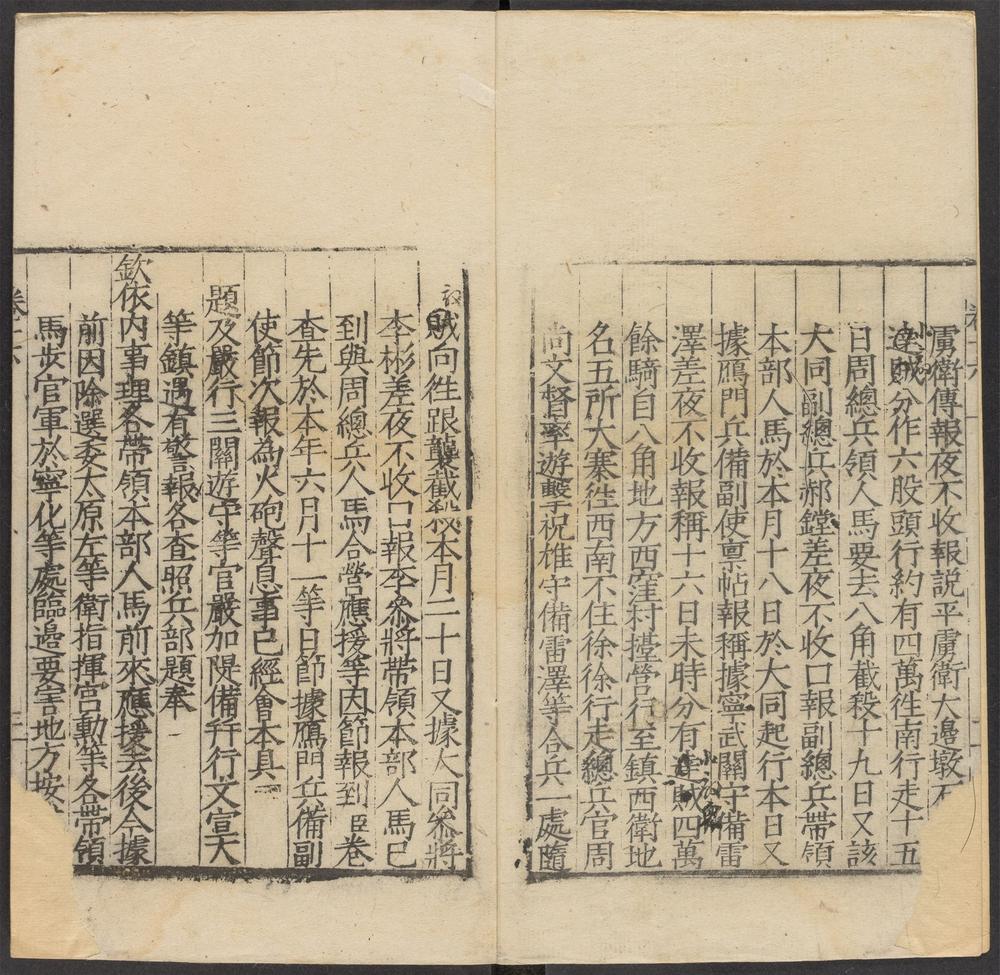 虜衛傳報夜不收報説平虜衛大邊墩
達賊分作六股頭行約有四萬徃南行走十五
日周總兵領人馬要去八角截殺十九日又該
大同副總兵郝鏜差夜不收口報副總兵帶領
本部人馬於本月十八日於大同起行本日又
據鴈門兵備副使禀帖報稱據寧武關守備雷
澤差夜不收報稱十六日未時分有達賊四萬
餘騎自八角地方西窪村擡營行至鎮西衛地
名五所大寨徃西南不住徐徐行走總兵官周
尚文督率遊擊祝雄守備雷澤等合兵一處隨
賊向徃跟襲截殺本月二十日又據大同叅將
李彬差夜不收口報李叅將帶領本部人馬已
到與周總兵人馬合營應援等因節報到臣卷
查先於本年六月十一等日節據鴈門兵備副
使節次報為火砲聲息事已經會本具
題及嚴行三關遊守等官嚴加隄備幷行文宣大
等鎮遇有警報各查照兵部題奉
欽依内事理各帶領本部人馬前來應援去後今據
前因除選委太原左等衛指揮宫勳等各帶領
馬步官軍於寧化等處臨邊要害地方按
卷十六